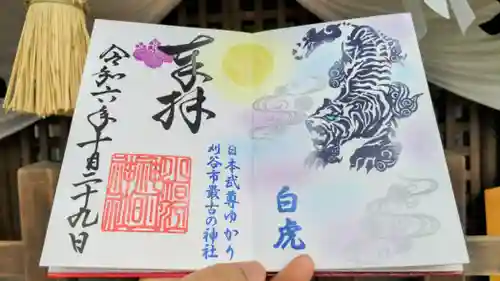 白虎
日本武尊ゆかりの
刈谷市最古の神社
奉拝
令和六年十月二十九日